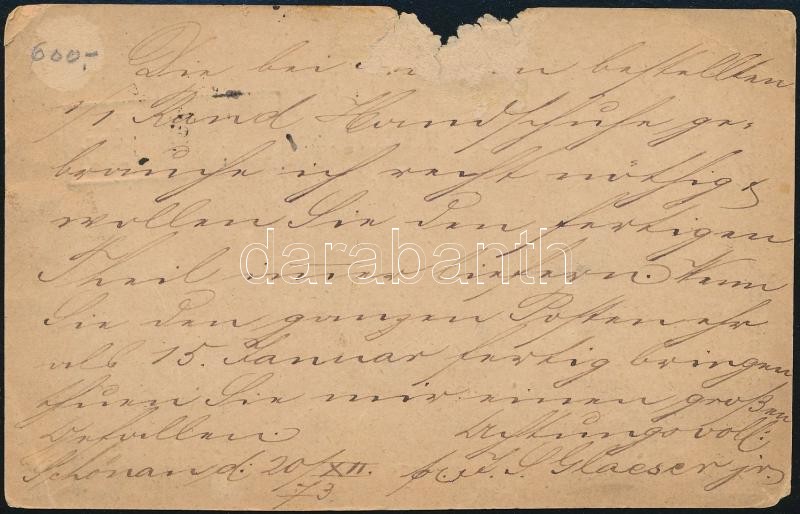 600,-
Die bei bestellten
1/1 Rand Handschuhe ge-
brauche ich recht nöthig &
wollen Sie den fertigen
Theil immer liefern. Wenn
Sie den ganzen Posten ehr
als 15. Januar fertig bringen
thuen Sie mir einen großen
Gefallen. Achtungsvoll:
Schönau d. 20/XII. F. S. Glaeser jr.
73.
darabanth